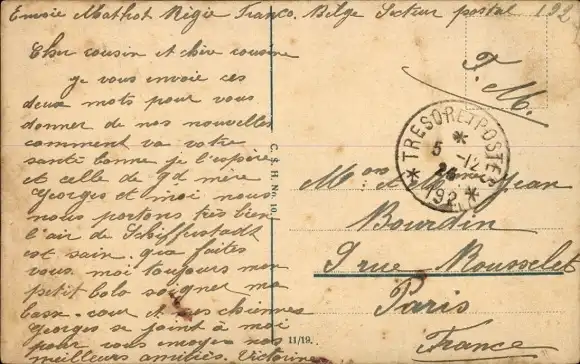 Envoie Mathot Régie Franco Belge Secteur postal 192
Cher cousin et chère cousine
je vous envoie ces
deux mots pour vous
donner de nos nouvelles
comment va votre
santé bonne je l'espère
et celle de gd mère
Georges et moi nous
nous portons très bien
l'air de Schifferstadt
est sain. que faites
vous moi toujours mon
petit bolo soigner ma
basse-cour et mes chiennes
Georges se joint à moi
pour vous envoyer nos
meilleurs amitiés. Victorine
C. & H. No. 10.
11/19.
F.M.
TRESOR ET POSTES
5 -12
192
Mon et Mme Jean
Bourdin
9 rue Rousselet
Paris
France